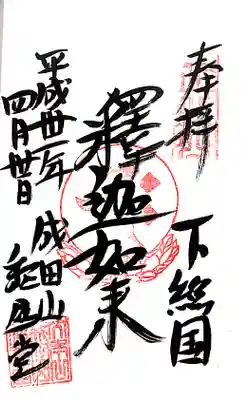 奉拝
下総国
釋迦如来
成田山
釈迦堂
平成卅一年
四月卅日